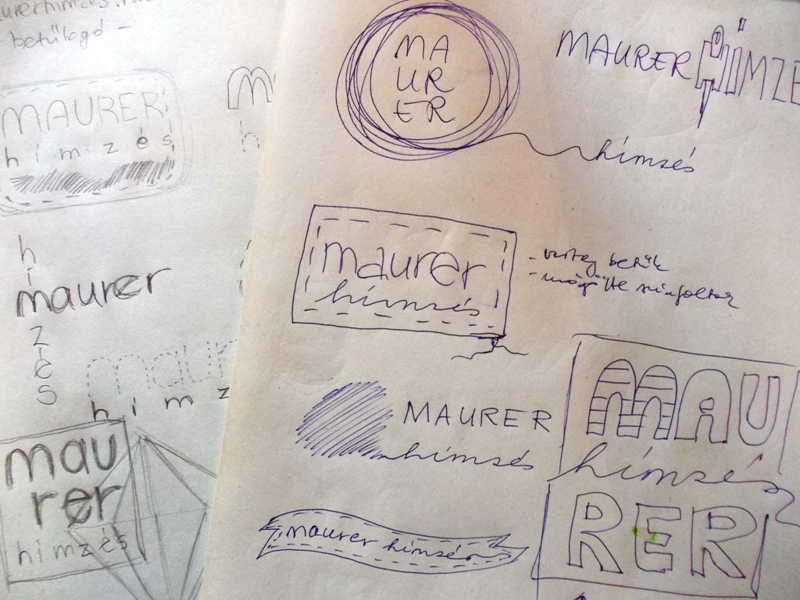 urerhimzes.
betűlogó -
MAURER
hímzés
M
h
h
í
maurer
z
é
s
maur
h í m z
mau
rer
hímzés
MA
UR
ER
hímzés
MAURER HÍMZÉ
maurer
hímzés
- vastag betűk
- mögötte színfoltok
MAURER
hímzés
MAU
hímzés
RER
maurer hímzés